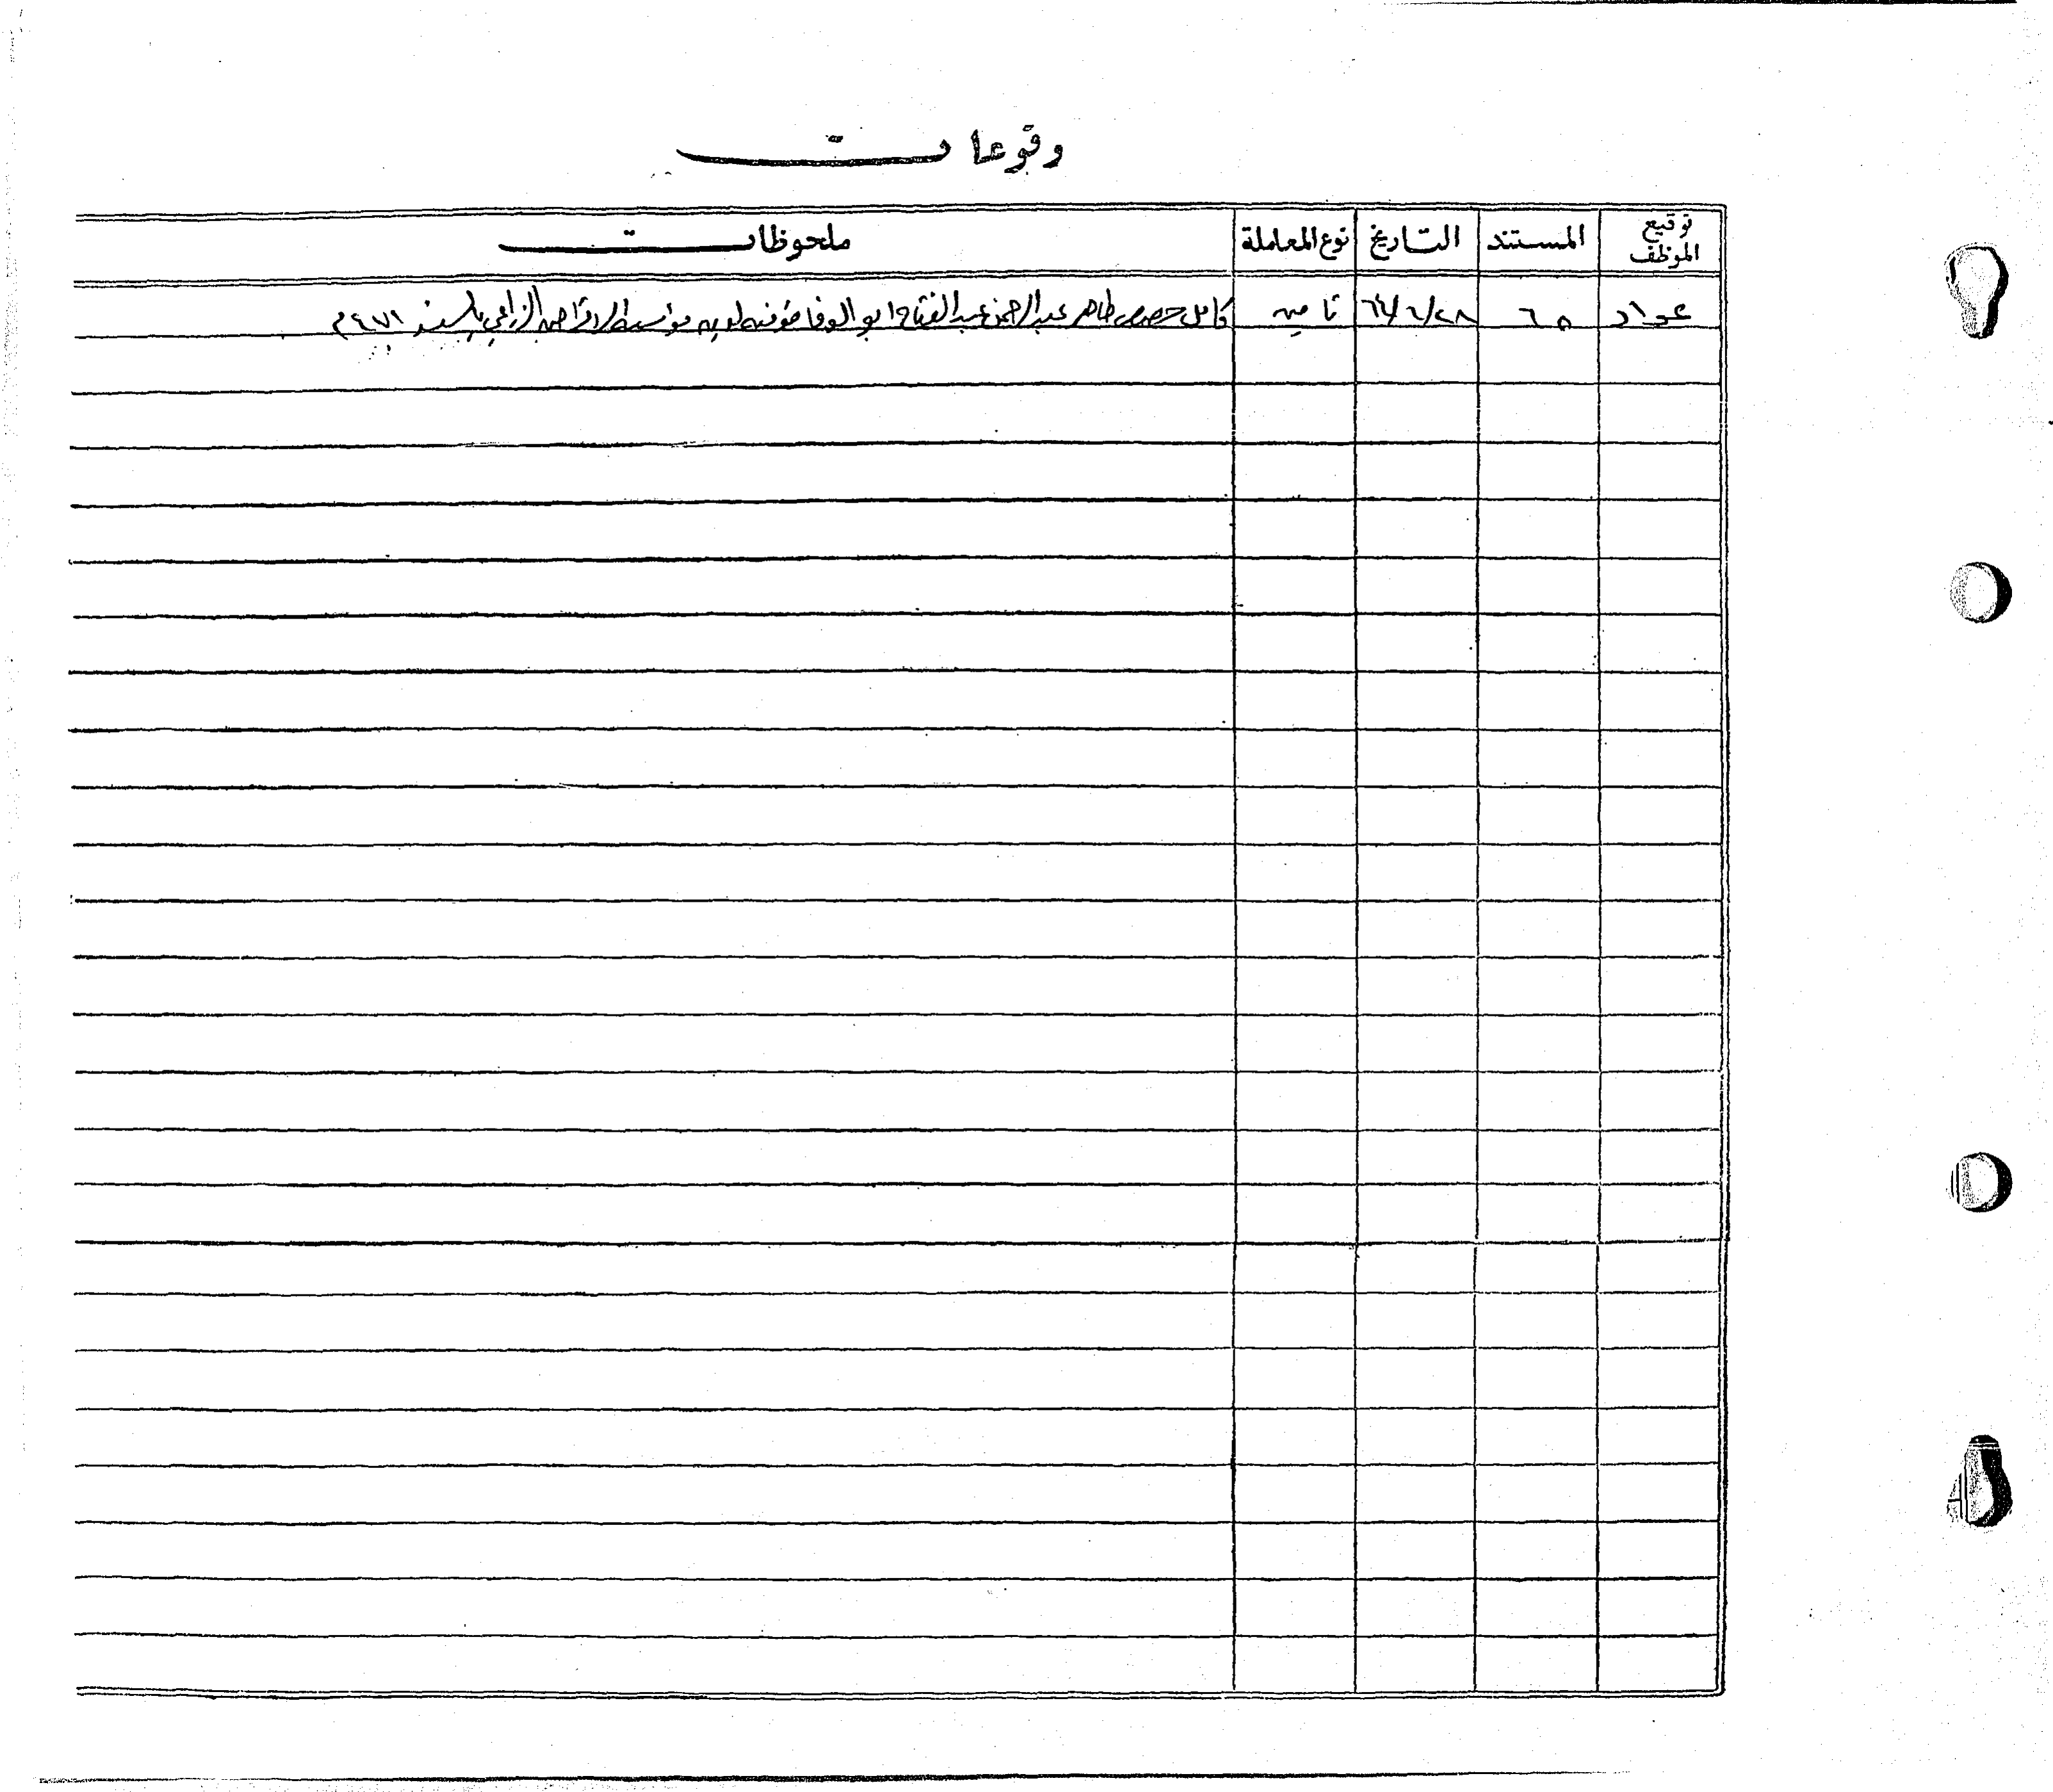 وقوعات
توقيع الموظف المستند التاريخ نوع المعاملة ملحوظات
عواد ٦٥ ٢٨/٦/٦٤ تامين كامل حصص طاهر عبد الرحمن عبد الفتاح ابو الوفا مؤمنه لدين مؤسسة الاقراض الزراعي بالسند ٤٧١م